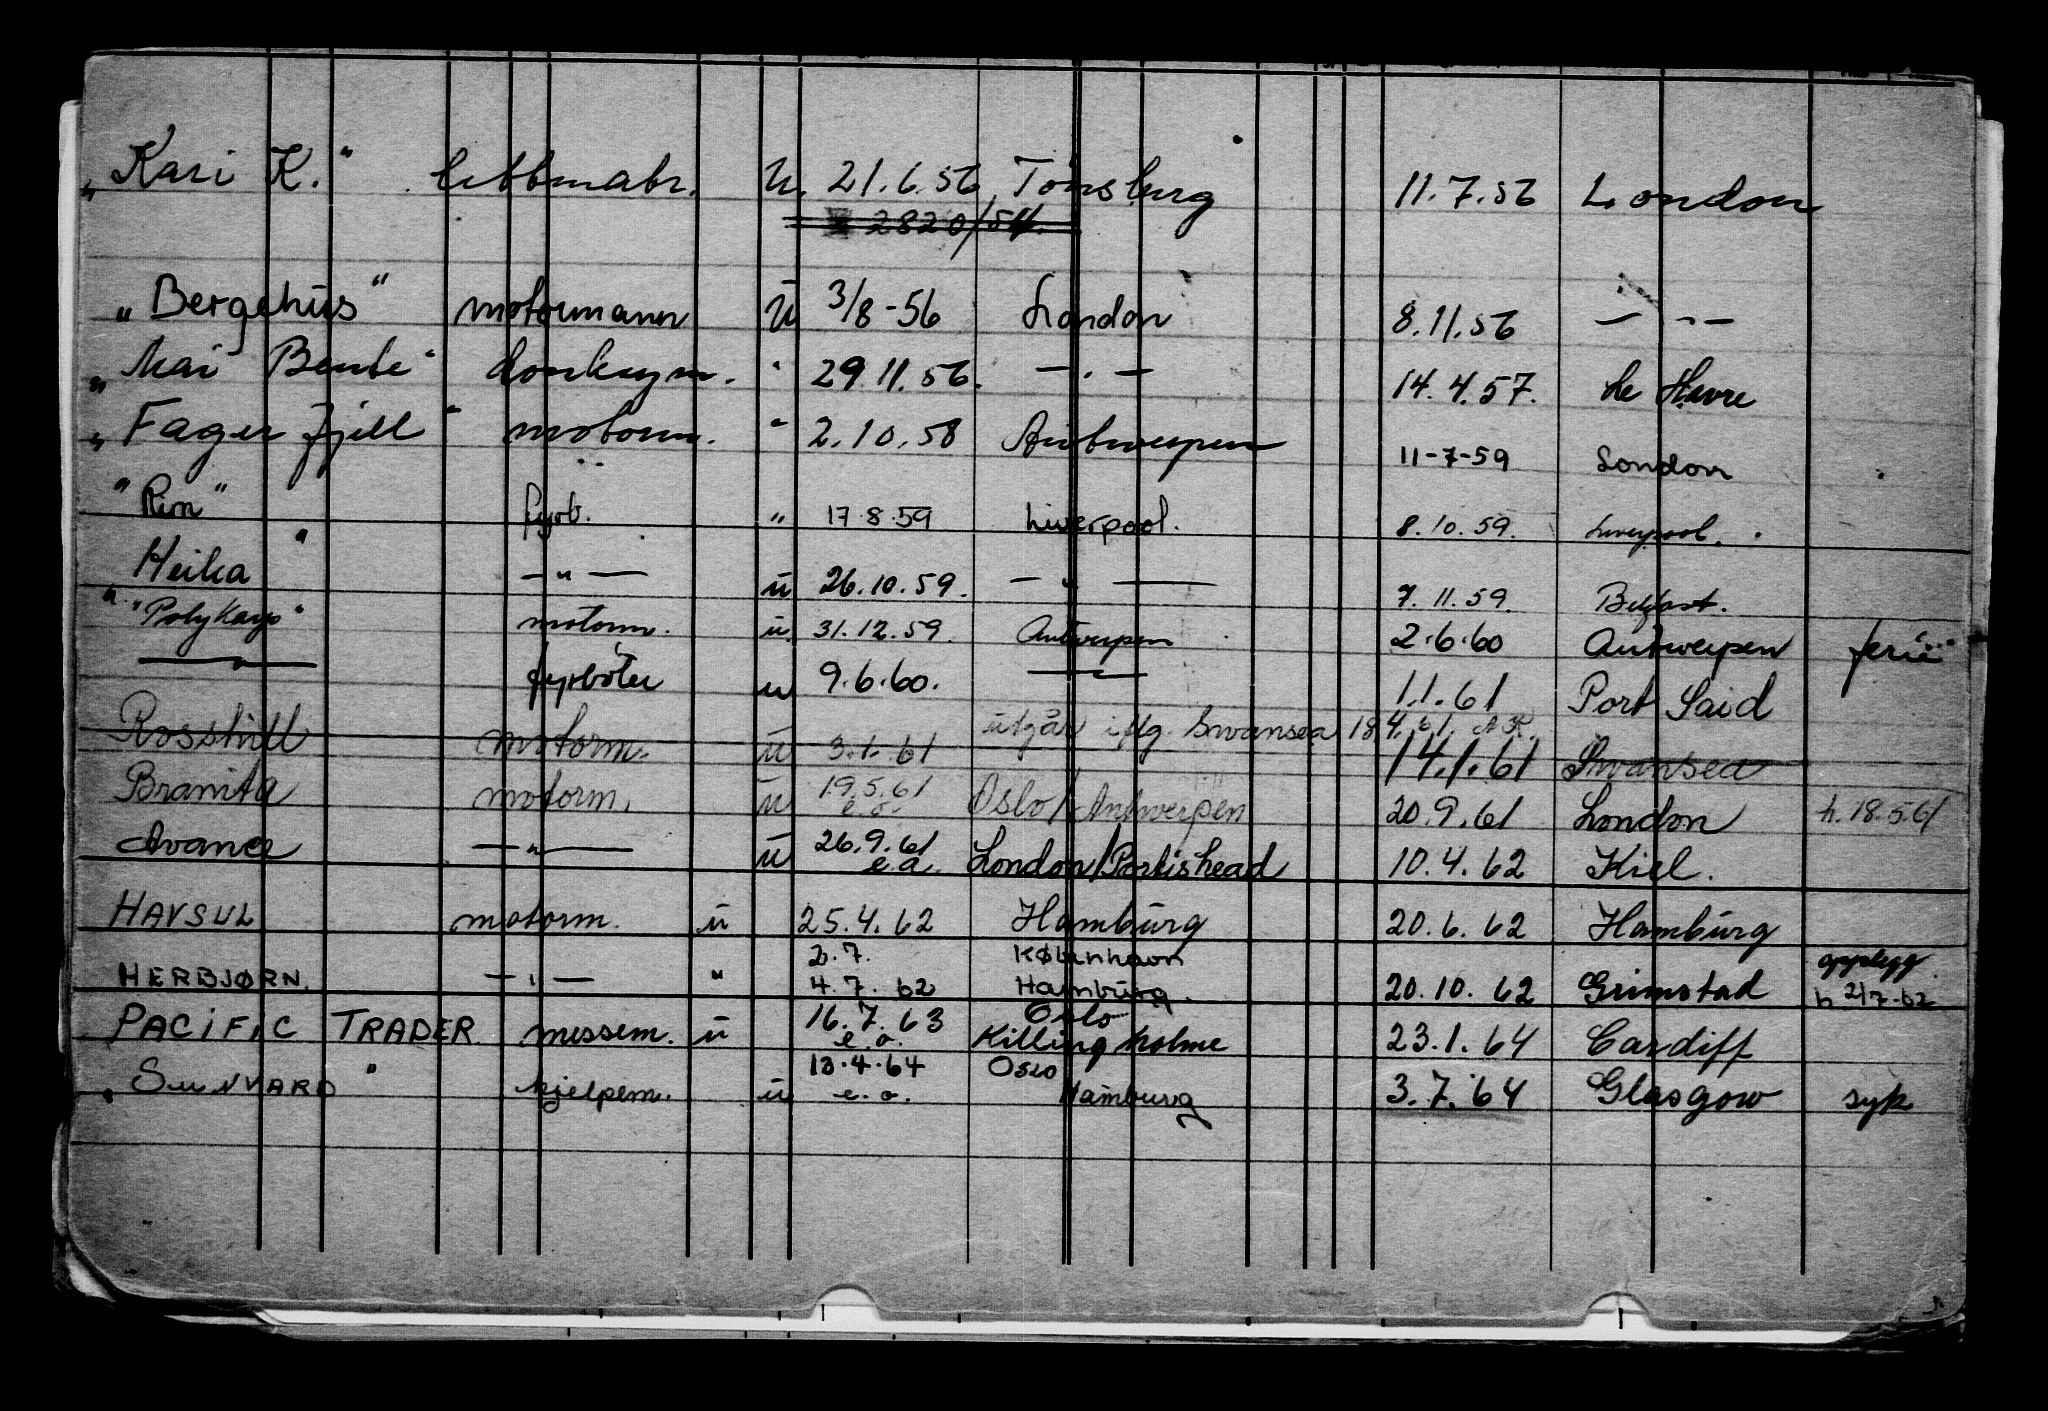 "Kari K." lettmatr. u. 21.6.56 Tönsberg 11.7.56 London
2820/54.
"Bergehus" motormann u 3/8-56 London 8.11.56 — " —
"Mai Bente" donkeym. " 29.11.56. — " — 14.4.57. Le Havre
"Fagerfjell" motorm. " 2.10.58 Antwerpen 11-7-59 London
"Rin" fyrb. " 17.8.59 Liverpool. 8.10.59. Liverpool.
"Heika" — " — u 26.10.59. — " — 7.11.59. Belfast.
"Polykarp" motorm. u. 31.12.59. Antwerpen 2.6.60 Antwerpen ferie
— " — fyrbøter u 9.6.60. — " — 1.1.61 Port Said
utgår iflg. Swansea 18.4.61. A.K.
Rosshill motorm. u 3.1.61 14.1.61 Swansea
Branita motorm. u 19.5.61 e.o. Oslo/Antwerpen 20.9.61 London h.18.5.61
Avance — " — u 26.9.61 e.a. London/Portishead 10.4.62 Kiel.
HAVSUL motorm. u 25.4.62 Hamburg 20.6.62 Hamburg
2.7. København opplegg.
HERBJØRN. — " — " 4.7.62 Hamburg. 20.10.62 Grimstad h 2/7-62
16.7.63 Oslo
PACIFIC TRADER messem. u e.o. Killingholme 23.1.64 Cardiff
13.4.64 Oslo
"SUNVARD" hjelpem. u e.o. Hamburg 3.7.64 Glasgow syk